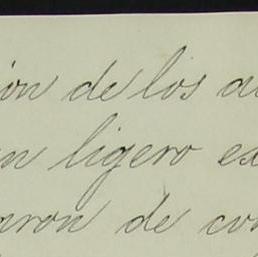 ión de los a
un ligero ex
aron de con